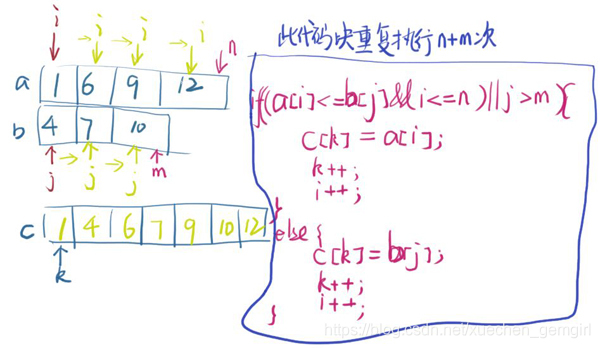 i i i i n
a 1 6 9 12
b 4 7 10
j j j m
c 1 4 6 7 9 10 12
k
此代码块重复执行n+m次
if((a[i]<=b[j]&&i<=n)||j>m){
c[k]=a[i];
k++;
i++;
}
else{
c[k]=b[j];
k++;
i++;
}
https://blog.csdn.net/xuechen_gemgirl